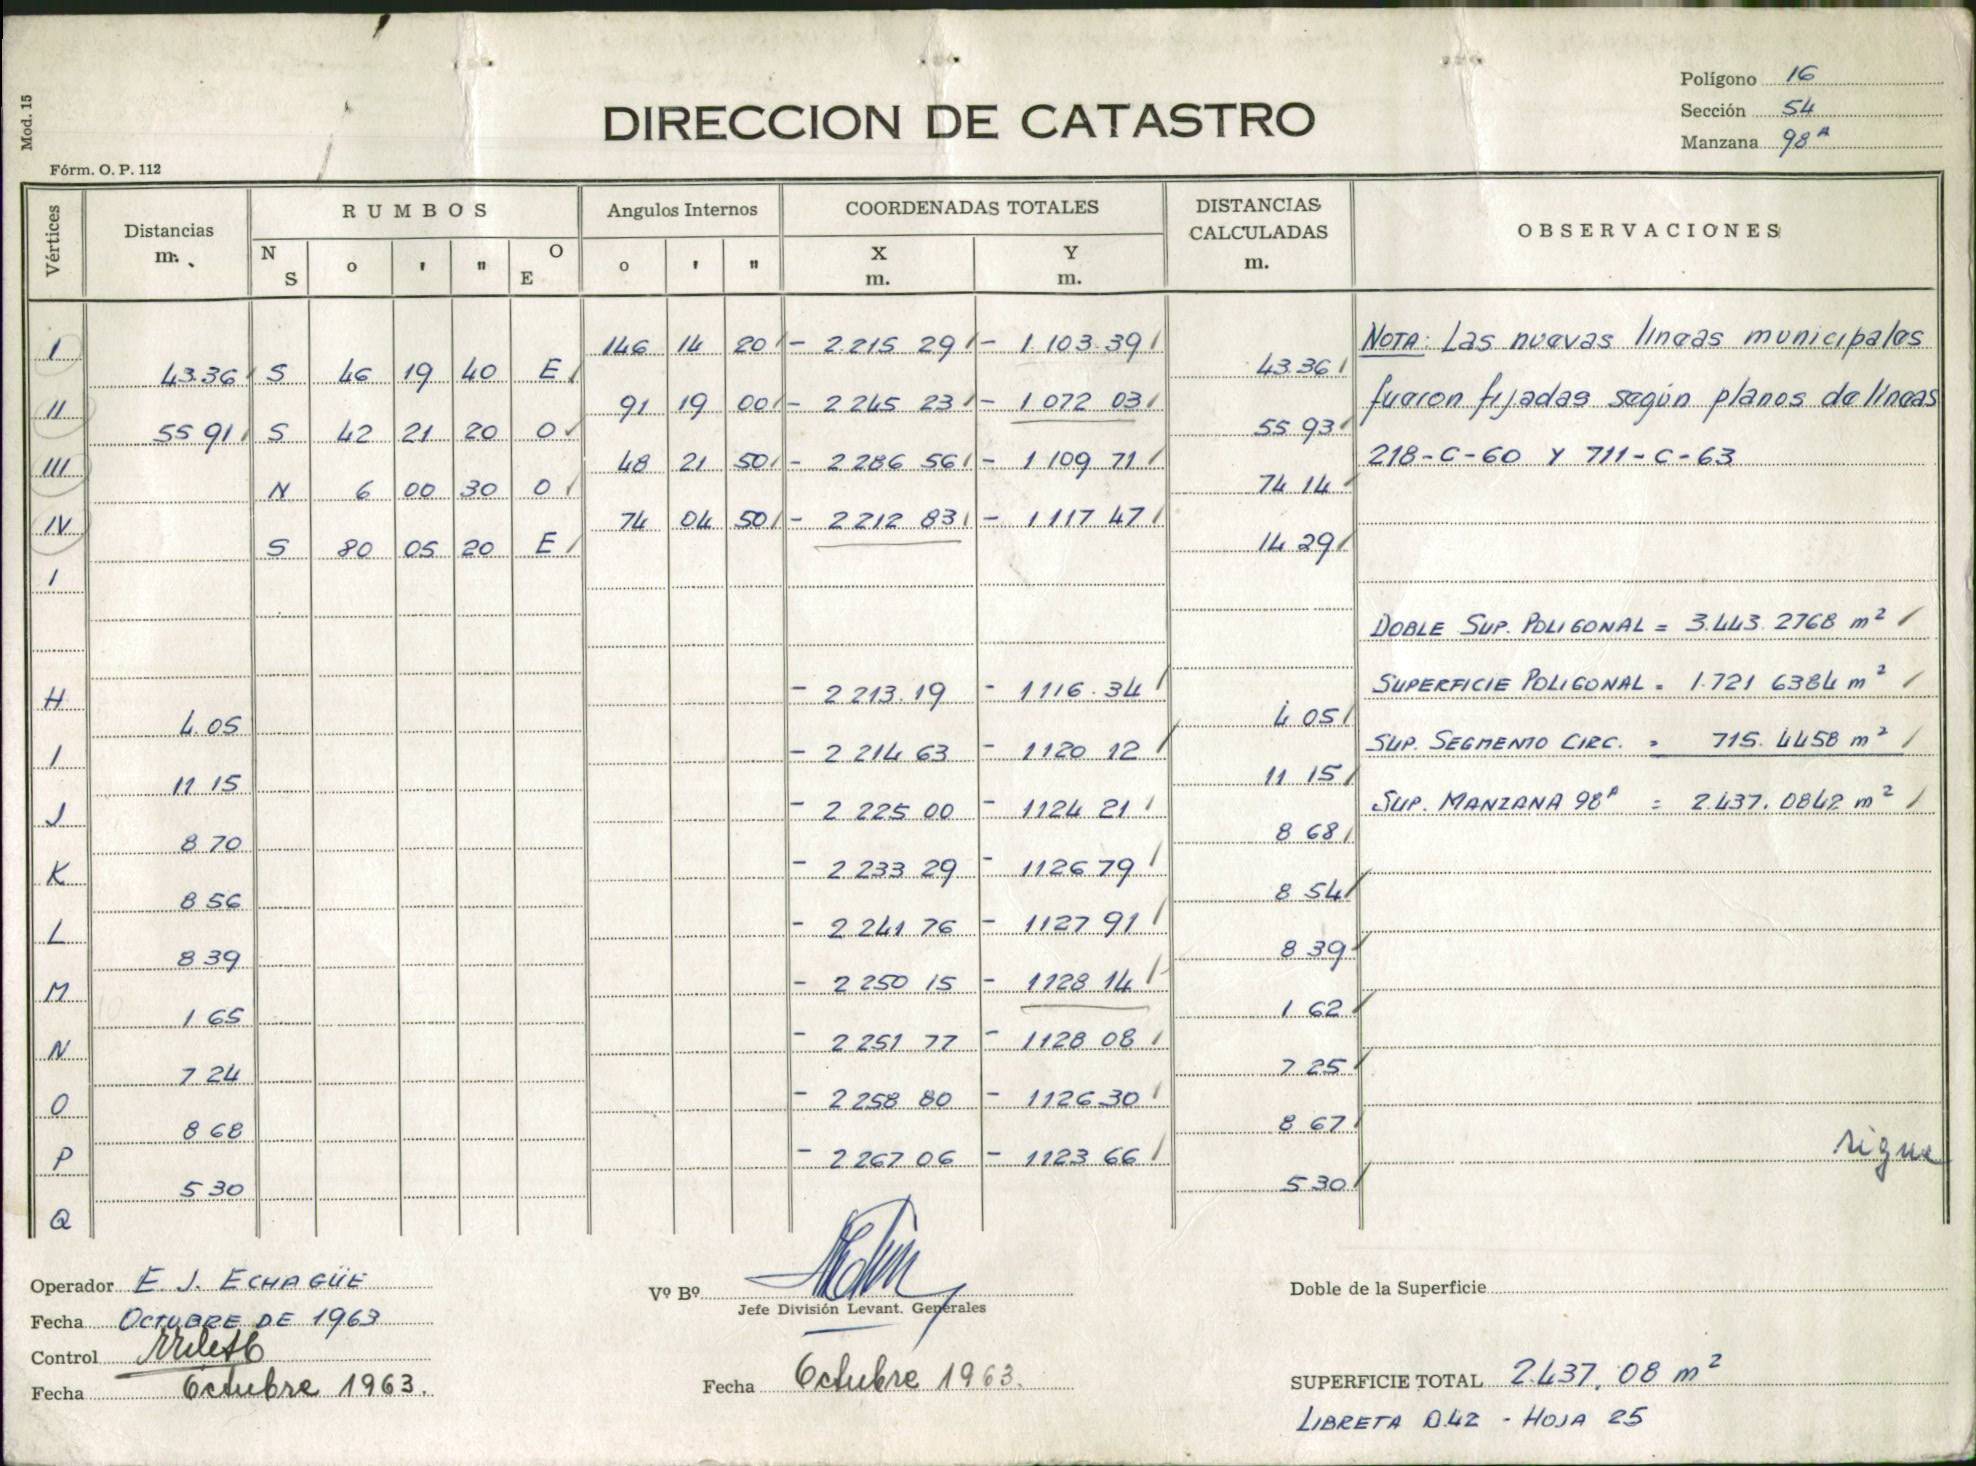 Mod. 15
Fórm. O. P. 112
DIRECCION DE CATASTRO
Polígono 16
Sección 54
Manzana 98 A
Vértices Distancias m. RUMBOS Angulos Internos COORDENADAS TOTALES DISTANCIAS CALCULADAS m. OBSERVACIONES
N S o ' " O E o ' " X m. Y m.
I 146 14 20 - 2.215 29 - 1 103.39
43.36 S 46 19 40 E 43.36
II 91 19 00 - 2 245 23 - 1 072 03
55 91 S 42 21 20 O 55 93
III 48 21 50 - 2 286 56 - 1 109 71
N 6 00 30 O 74 14
IV 74 04 50 - 2 212 83 - 1 117 47
S 80 05 20 E 14 29
I
H - 2 213.19 - 1116.34
4.05 4 05
I - 2 214 63 - 1120 12
11 15 11 15
J - 2 225 00 - 1124 21
8 70 8 68
K - 2 233 29 - 1126 79
8 56 8 54
L - 2 241 76 - 1127 91
8 39 8 39
M - 2 250 15 - 1128 14
1 65 1 62
N - 2 251 77 - 1128 08
7 24 7 25
O - 2 258 80 - 1126 30
8 68 8 67
P - 2 267 06 - 1123 66
5 30 5 30
Q
NOTA: Las nuevas líneas municipales
fueron fijadas según planos de líneas
218-C-60 y 711-C-63
DOBLE SUP. POLIGONAL = 3.443.2768 m²
SUPERFICIE POLIGONAL = 1.721 6384 m²
SUP. SEGMENTO CIRC. = 715.4458 m²
SUP. MANZANA 98 A = 2.437.0842 m²
sigue
Operador E. J. ECHAGÜE
Fecha OCTUBRE DE 1963
Control
Fecha Octubre 1963.
Vº Bº
Jefe División Levant. Generales
Fecha Octubre 1963.
Doble de la Superficie
SUPERFICIE TOTAL 2.437,08 m²
LIBRETA D.42 - HOJA 25